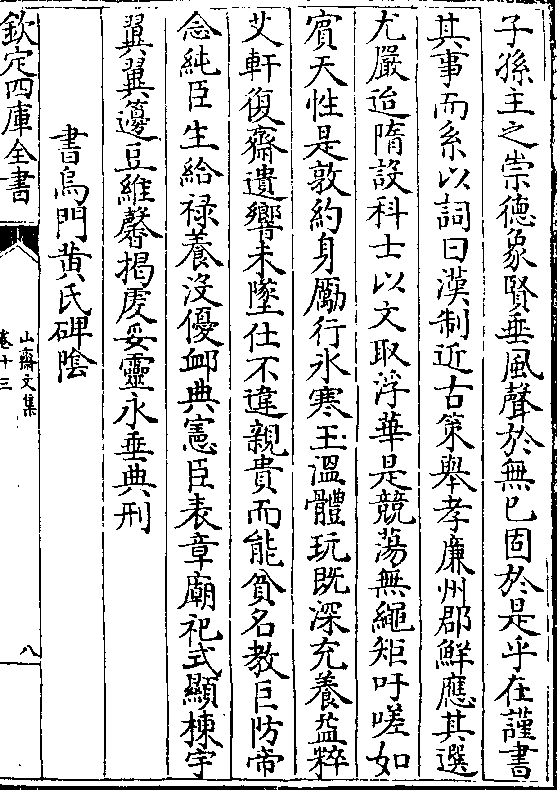 子孫主之崇德象賢垂風聲於無已固於是乎在謹書
其事而系以詞曰漢制近古策舉孝廉州郡鮮應其選
尤嚴迨隋設科士以文取浮華是競蕩無繩矩吁嗟如
賔天性是敦約身勵行氷寒玉溫體玩既深充養益粹
艾軒復齋遺響未墜仕不違親貴而能貧名教巨防帝
念純臣生給禄養沒優衈典憲臣表章廟祀式顯棟宇
翼翼籩豆維馨揭䖍妥靈永垂典刑
書烏門黄氏碑陰
欽定四庫全書
山齋文集
卷十三
八